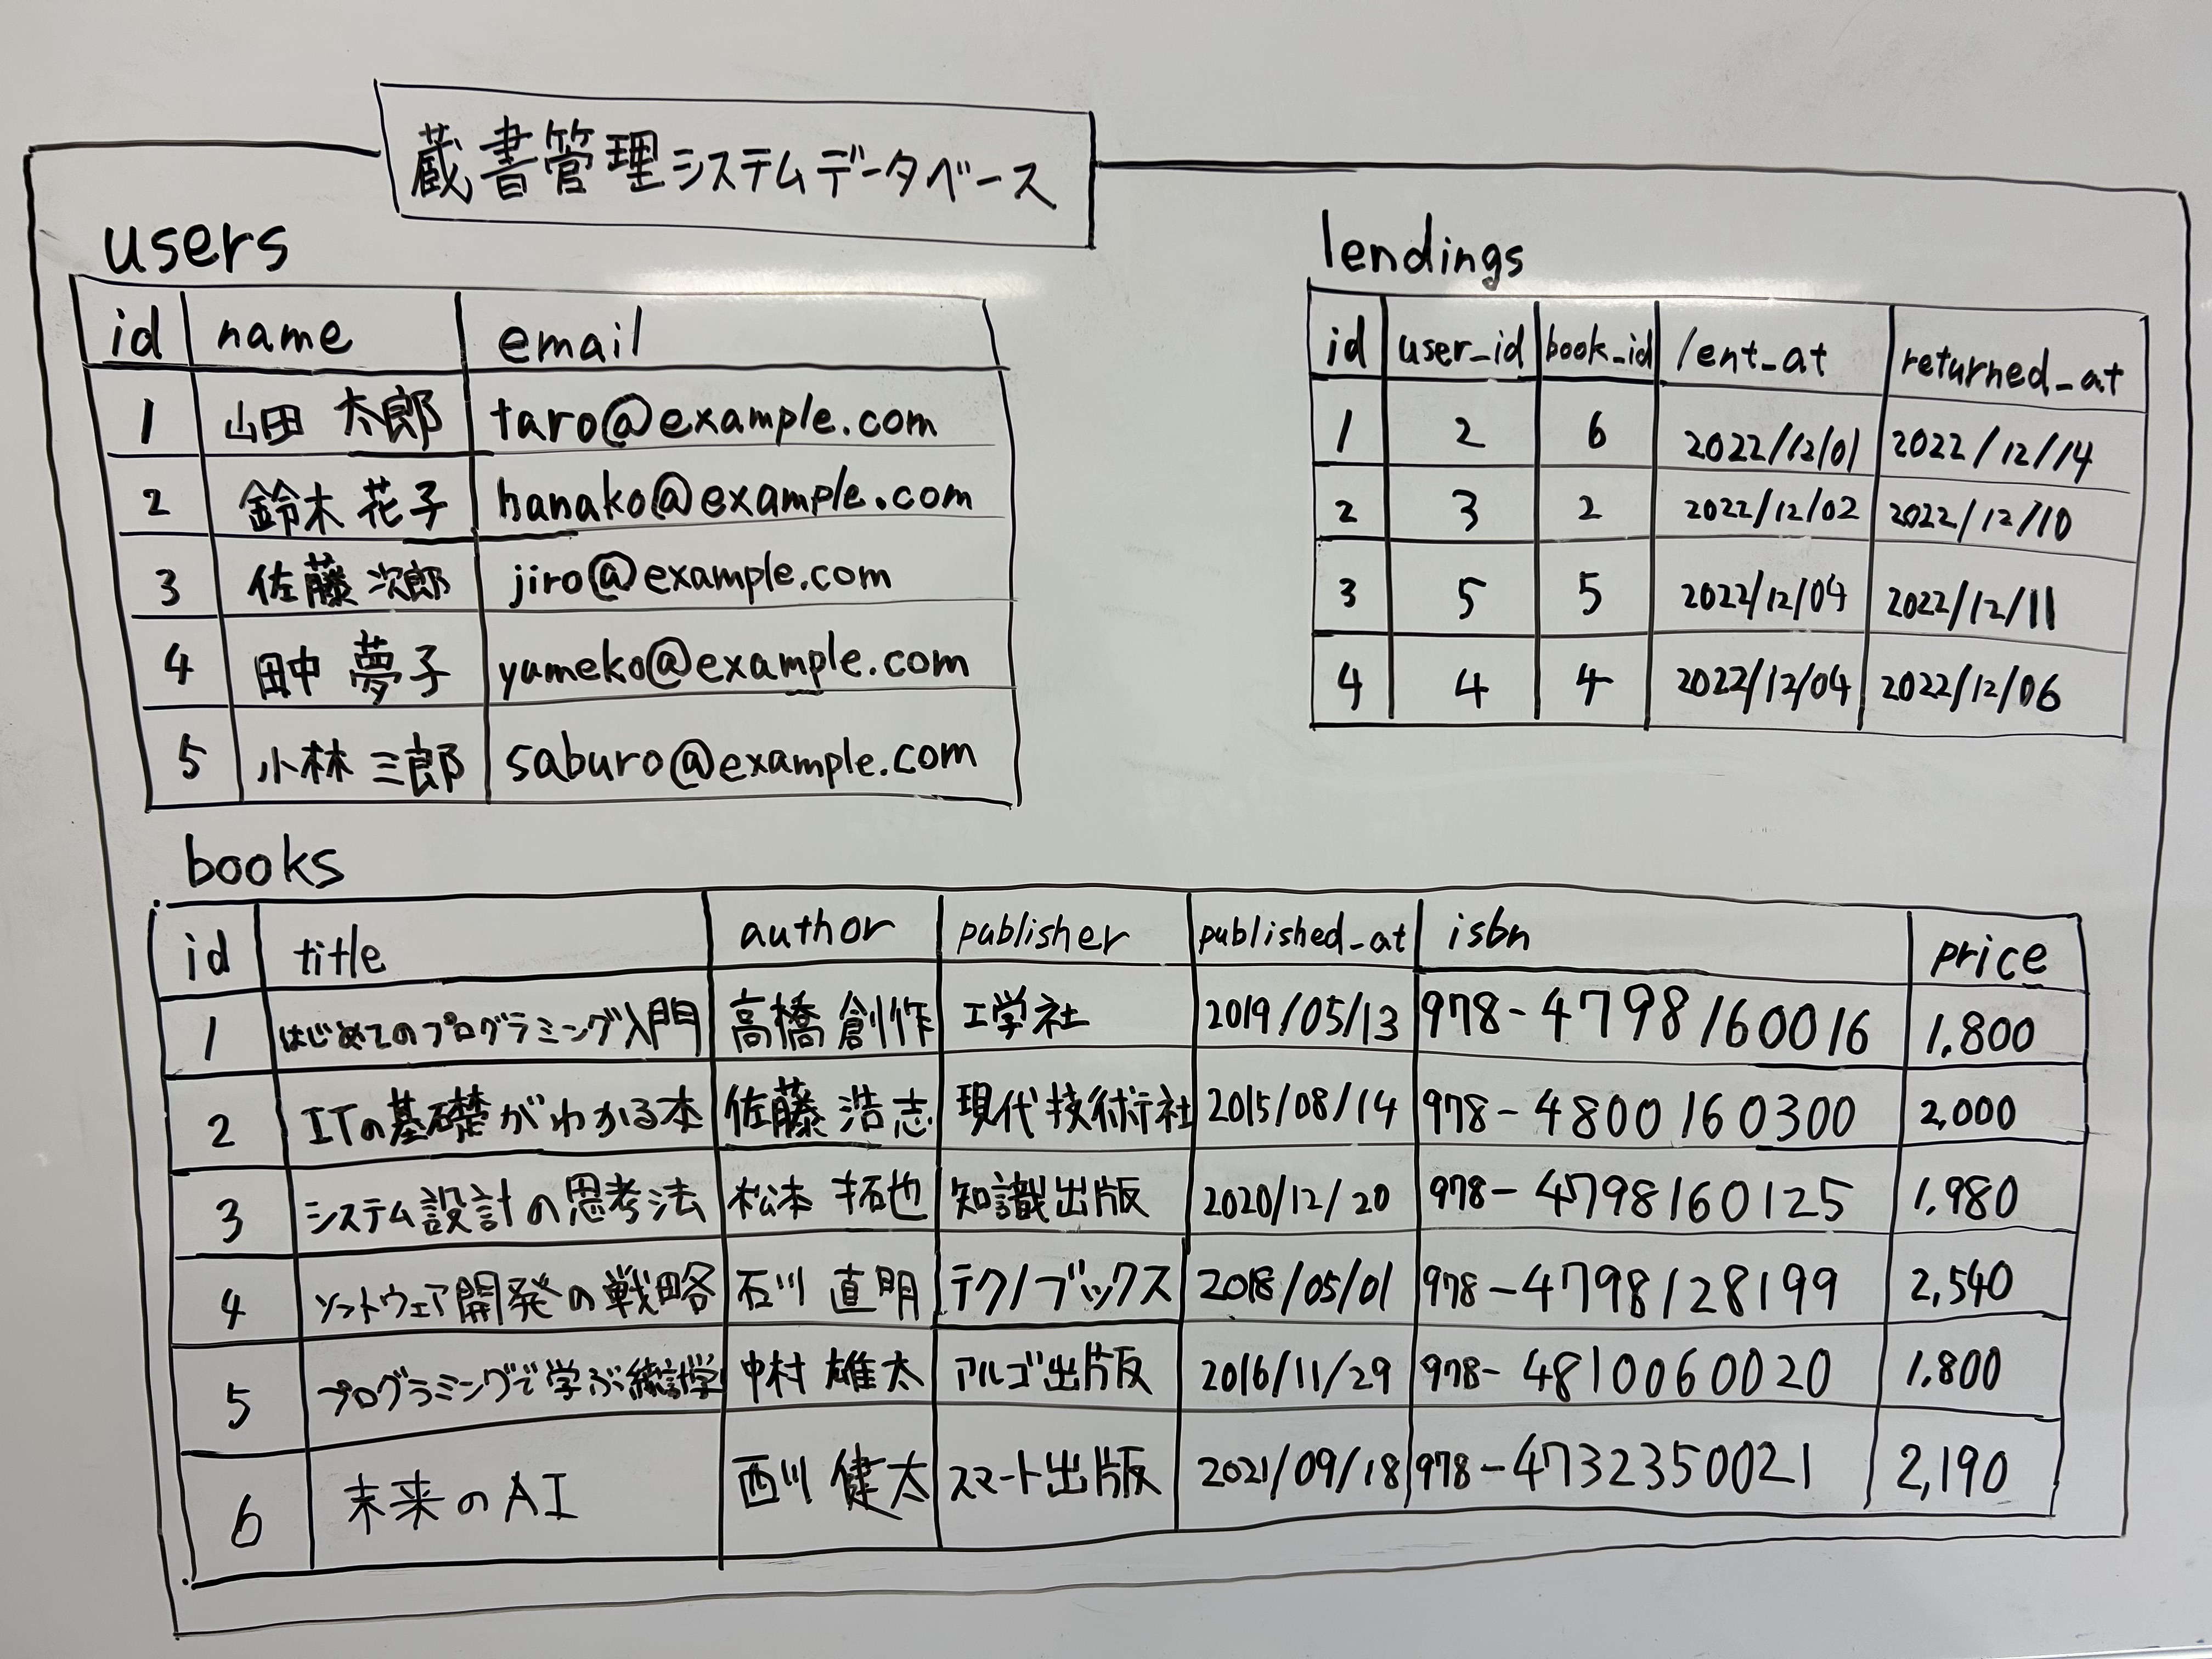 蔵書管理システムデータベース
users
id name email
1 山田 太郎 taro@example.com
2 鈴木 花子 hanako@example.com
3 佐藤 次郎 jiro@example.com
4 田中 夢子 yumeko@example.com
5 小林 三郎 saburo@example.com
lendings
id user_id book_id lent_at returned_at
1 2 6 2022/12/01 2022/12/14
2 3 2 2022/12/02 2022/12/10
3 5 5 2022/12/04 2022/12/11
4 4 4 2022/12/04 2022/12/06
books
id title author publisher published_at isbn price
1 はじめてのプログラミング入門 高橋 創作 工学社 2019/05/13 978-4798160016 1,800
2 ITの基礎がわかる本 佐藤 浩志 現代技術社 2015/08/14 978-4800160300 2,000
3 システム設計の思考法 松本 拓也 知識出版 2020/12/20 978-4798160125 1,980
4 ソフトウェア開発の戦略 石川 直明 テクノブックス 2018/05/01 978-4798128199 2,540
5 プログラミングで学ぶ統計学 中村 雄太 アルゴ出版 2016/11/29 978-4810060020 1,800
6 未来のAI 西川 健太 スマート出版 2021/09/18 978-4732350021 2,190